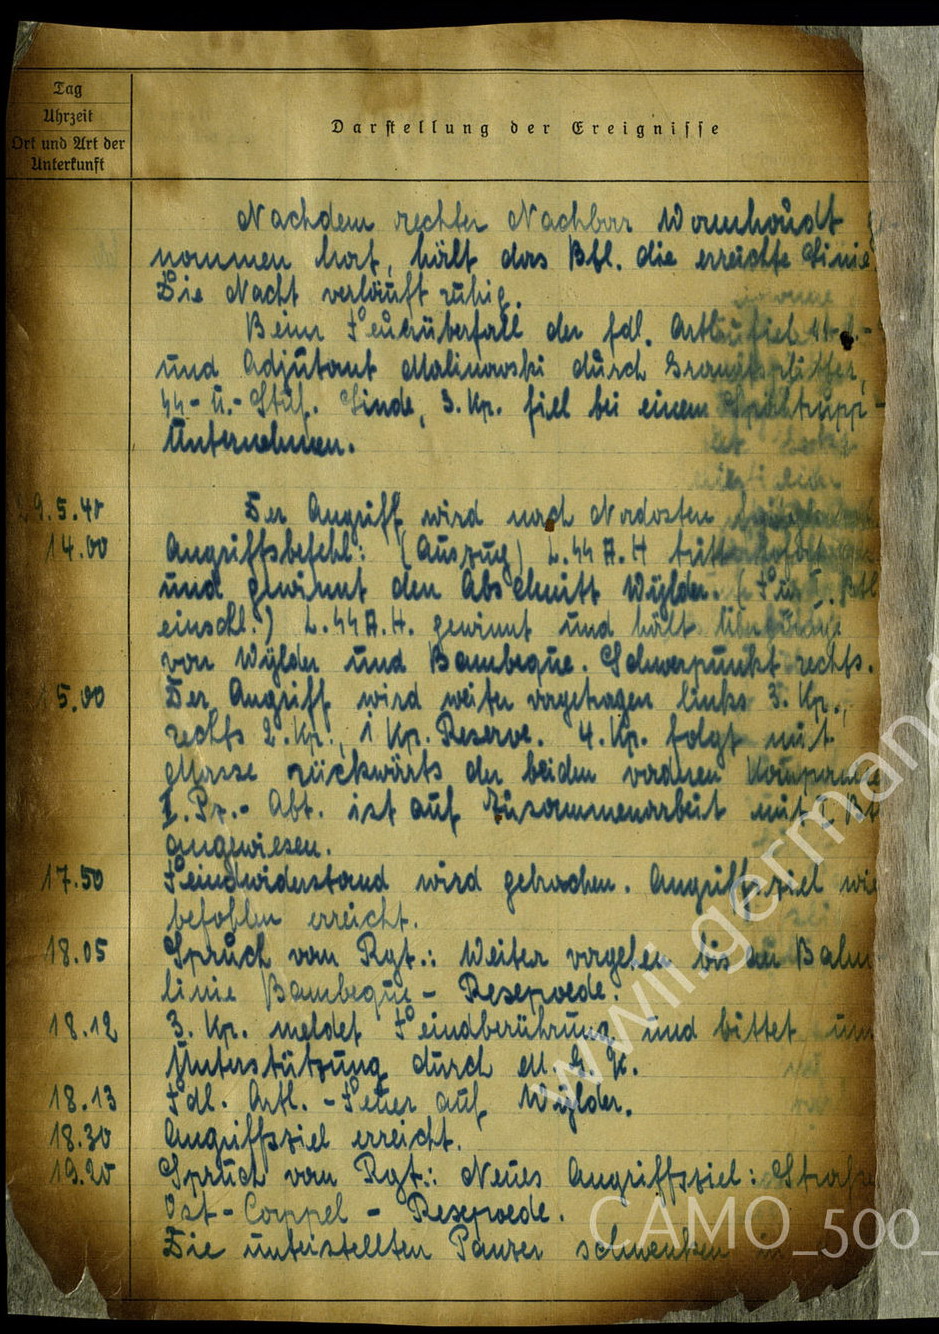 Tag
Uhrzeit
Ort und Art der
Unterkunft
Darstellung der Ereignisse
Nachdem rechter Nachbar Wormhoudt
nommen hat, hält das Btl. die erreichte Linie
Die Nacht verläuft ruhig.
Beim Feuerüberfall der fdl. Artl.
und Adjutant Malinowski durch Granatsplitter,
44-U.-Stuf. Linde, 3. Kp. fiel bei einem Spähtrupp-
Unternehmen.
9.5.40 Der Angriff wird nach Nordosten
14.00 Angriffsbefehl: (Auszug) L.44 A.H tritt
und gewinnt den Abschnitt Wylder. (Für I. Btl
einschl.) L.44 A.H. gewinnt und hält Übergänge
von Wylder und Bambeque. Schwerpunkt rechts.
5.00 Der Angriff wird weiter vorgetragen links 3. Kp.,
rechts 2. Kp., 1 Kp. Reserve. 4. Kp. folgt mit
Masse rückwärts der beiden vordren Kompanie
I. Pz.- Abt. ist auf Zusammenarbeit mit I. Bt
angewiesen.
17.50 Feindwiderstand wird gebrochen. Angriffsziel wie
befohlen erreicht.
18.05 Spruch vom Rgt.: Weiter vorgehen bis an Bahn
linie Bambeque - Resepoede.
18.12 3. Kp. meldet Feindberührung und bittet um
Unterstützung durch M. G. K.
18.13 Fdl. Artl. - Feuer auf Wylder.
18.30 Angriffsziel erreicht.
19.20 Spruch vom Rgt.: Neues Angriffsziel: Straße
Ost-Cappel - Resepoede.
Die unterstellten Panzer schwenken
www.wwii.germand
CAMO_500_